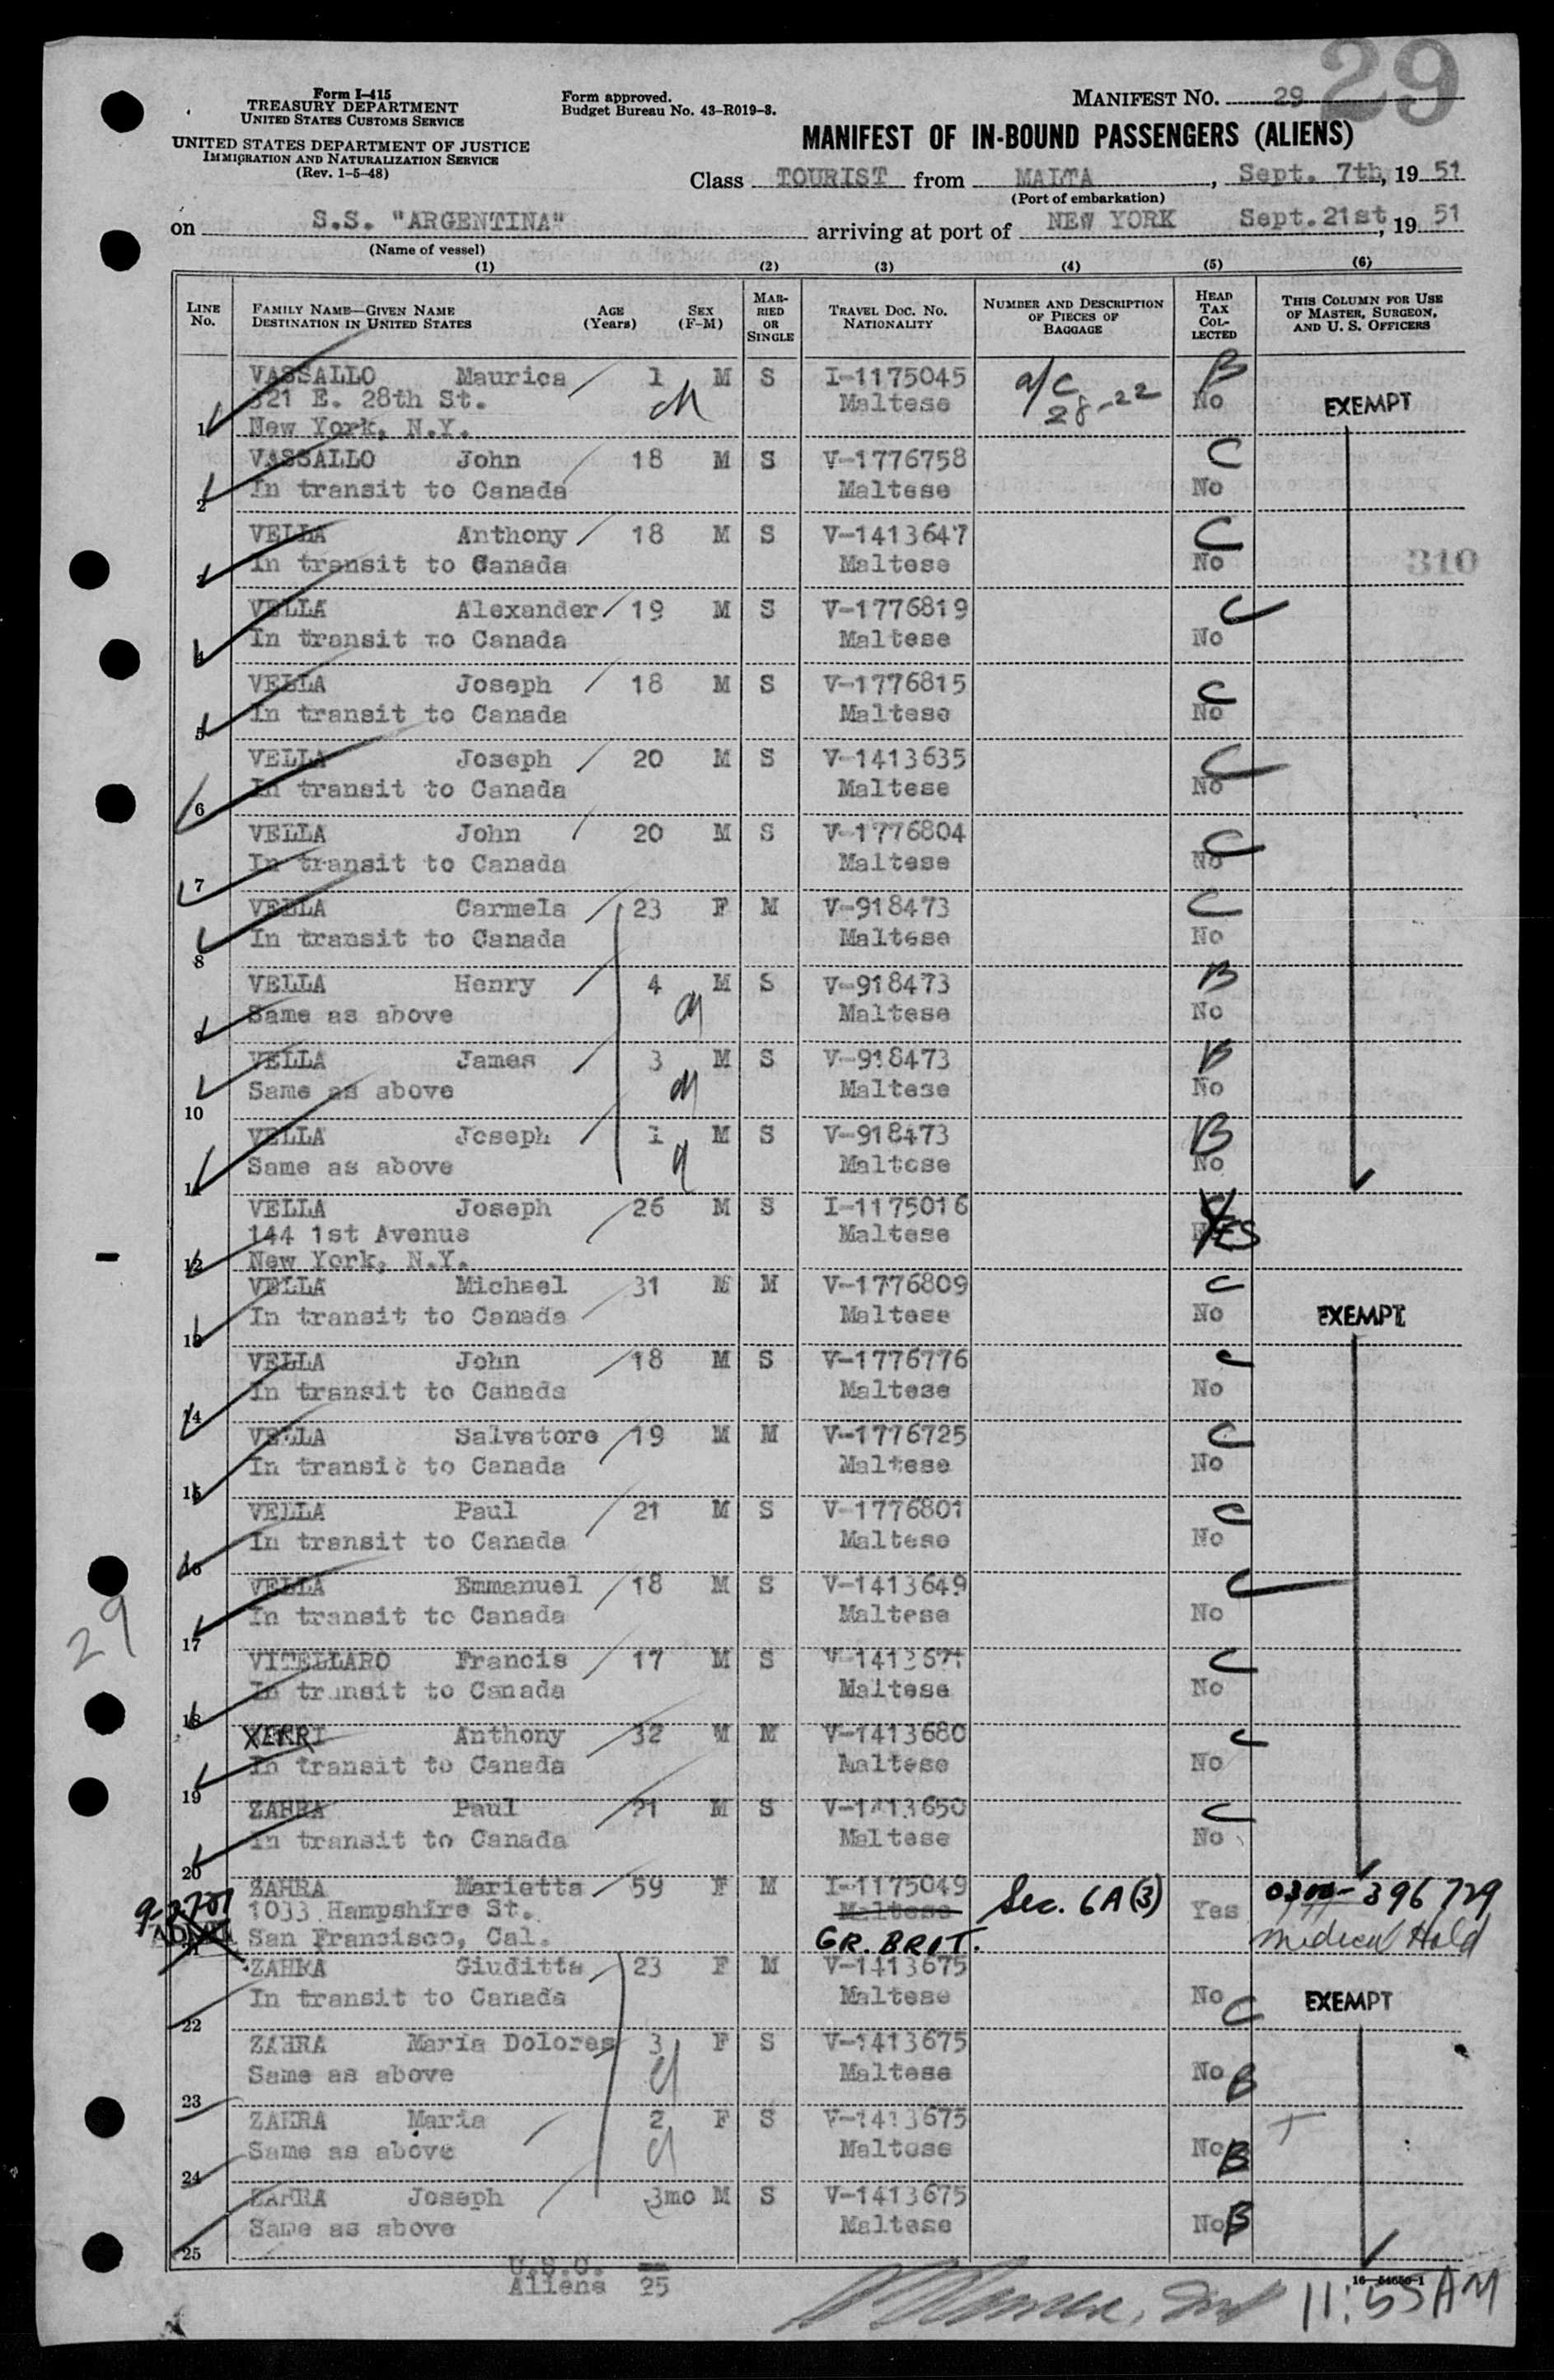 29
Form I-415
TREASURY DEPARTMENT
UNITED STATES CUSTOMS SERVICE
UNITED STATES DEPARTMENT OF JUSTICE
IMMIGRATION AND NATURALIZATION SERVICE
(Rev. 1-5-48)
Form approved.
Budget Bureau No. 43-R019-3.
MANIFEST NO. 29
MANIFEST OF IN-BOUND PASSENGERS (ALIENS)
Class TOURIST from MALTA, Sept. 7th, 19 51
(Port of embarkation)
on S.S. "ARGENTINA" arriving at port of NEW YORK Sept. 21st, 19 51
(Name of vessel)
(1) (2) (3) (4) (5) (6)
LINE No.
FAMILY NAME—GIVEN NAME
DESTINATION IN UNITED STATES
AGE (Years)
SEX (F-M)
MARRIED OR SINGLE
TRAVEL DOC. NO. NATIONALITY
NUMBER AND DESCRIPTION OF PIECES OF BAGGAGE
HEAD TAX COLLECTED
THIS COLUMN FOR USE OF MASTER, SURGEON, AND U. S. OFFICERS
VASSALLO Maurice 1 M S I-1175045 B
321 E. 28th St. Maltese No EXEMPT
1 New York, N.Y.
VASSALLO John 18 M S V-1776758 C
2 In transit to Canada Maltese No
VELLA Anthony 18 M S V-1413647 C
3 In transit to Canada Maltese No
310
VELLA Alexander 19 M S V-1776819 C
4 In transit to Canada Maltese No
VELLA Joseph 18 M S V-1776815 C
5 In transit to Canada Maltese No
VELLA Joseph 20 M S V-1413635 C
6 In transit to Canada Maltese No
VELLA John 20 M S V-1776804 C
7 In transit to Canada Maltese No
VELLA Carmela 23 F M V-918473 C
8 In transit to Canada Maltese No
VELLA Henry 4 M S V-918473 B
9 Same as above Maltese No
VELLA James 3 M S V-918473 B
10 Same as above Maltese No
VELLA Joseph 1 M S V-918473 B
11 Same as above Maltese No
VELLA Joseph 26 M S I-1175016
144 1st Avenue Maltese YES
12 New York, N.Y.
VELLA Michael 31 M M V-1776809 C
13 In transit to Canada Maltese No EXEMPT
VELLA John 18 M S V-1776776 C
14 In transit to Canada Maltese No
VELLA Salvatore 19 M M V-1776725 C
15 In transit to Canada Maltese No
VELLA Paul 21 M S V-1776801 C
16 In transit to Canada Maltese No
VELLA Emmanuel 18 M S V-1413649 C
17 In transit to Canada Maltese No
29
VITELLARO Francis 17 M S C
18 In transit to Canada Maltese No
XERRI Anthony 32 M M V-1413680 C
19 In transit to Canada Maltese No
ZAHRA Paul 21 M S V-1413650 C
20 In transit to Canada Maltese No
ZAHRA Marietta 59 F M I-1175049 Sec. 6A(3) 0300-396729
1033 Hampshire St. Maltese Yes
21 San Francisco, Cal. GR. BRIT. Medical Hold
ZAHRA Giuditta 23 F M V-1413675
22 In transit to Canada Maltese No C EXEMPT
ZAHRA Maria Dolores 3 F S V-1413675
23 Same as above Maltese No B
ZAHRA Maria 2 F S V-1413675
24 Same as above Maltese No B
ZAHRA Joseph 3mo M S V-1413675
25 Same as above Maltese No B
U.S.C. —
Aliens 25
16—54650-1
11:55 AM